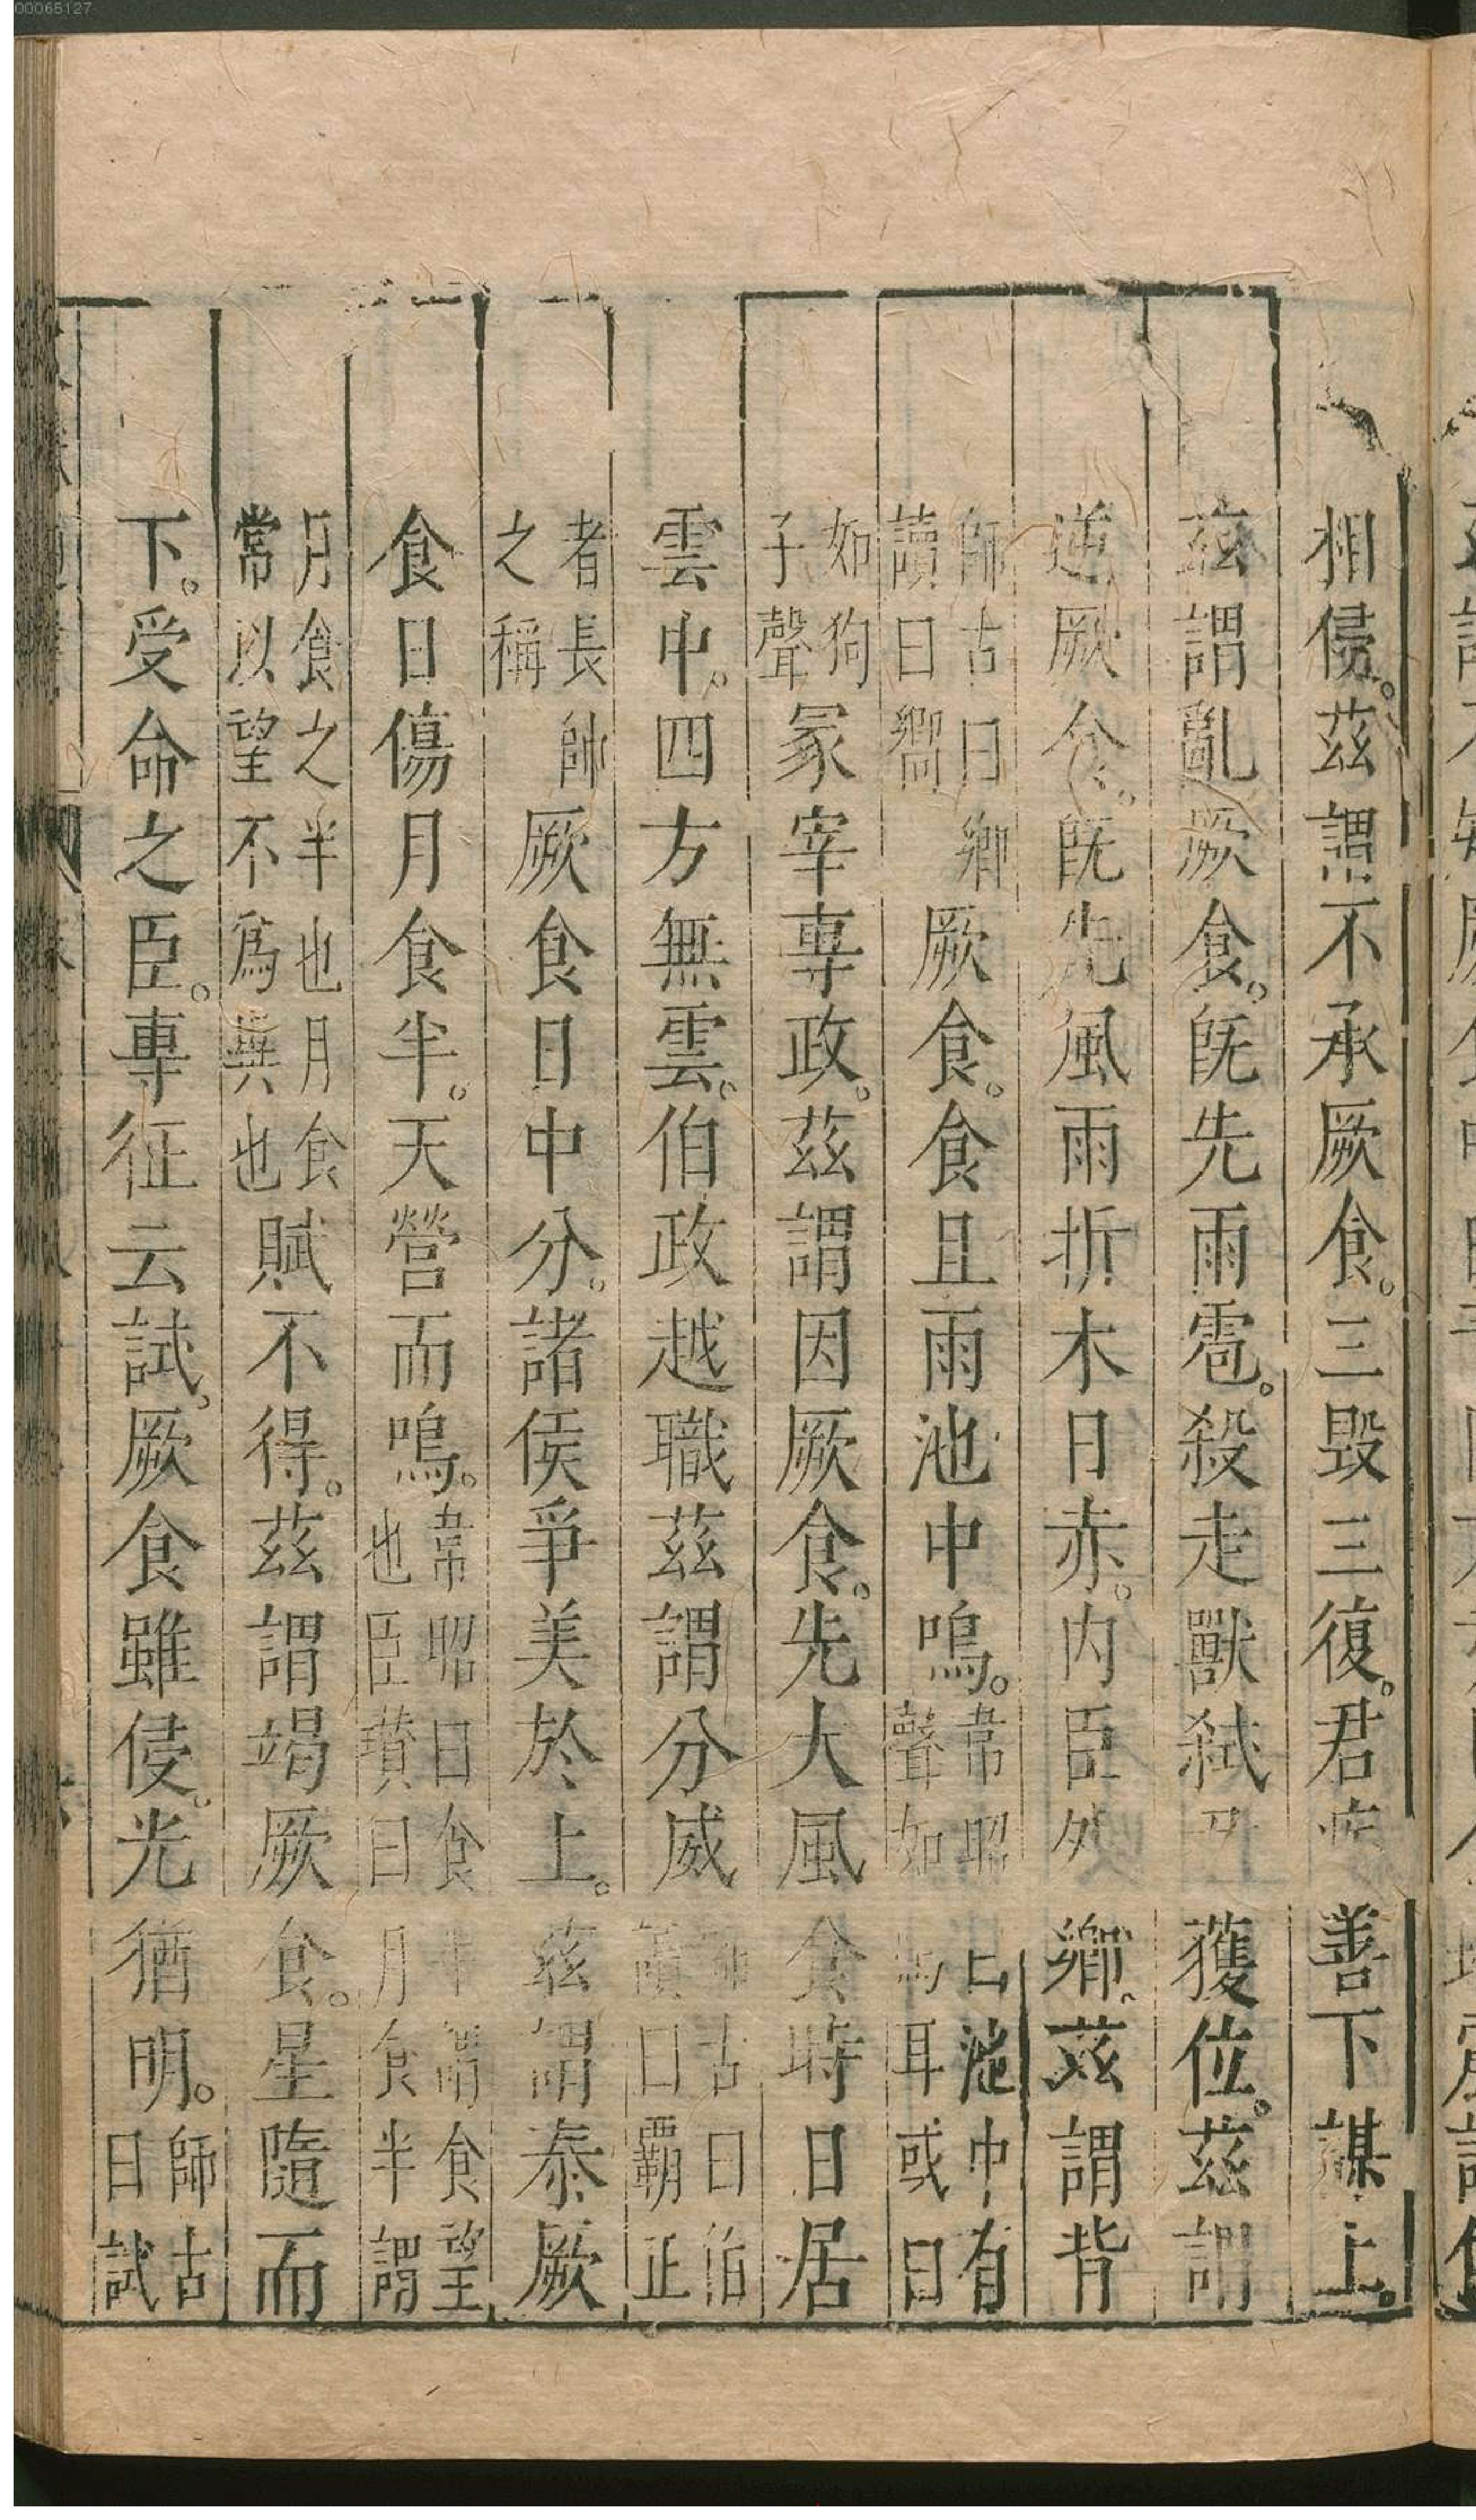 00065127
相侵。茲謂不承厥食。三毀三復。君疾善下謀上。
茲謂亂厥食。旣先雨雹。殺走獸弑丑獲位。茲謂
逆厥食。旣先風雨折木日赤。內臣外鄉。茲謂背
師古曰鄉
讀曰嚮
厥食。食且雨池中鳴。
韋昭曰池中有
聲如馬耳或曰
如狗
子聲
冢宰專政。茲謂因厥食。先大風食時日居
雲中。四方無雲。伯政越職茲謂分威
師古曰伯
讀曰覇正
者長帥
之稱
厥食日中分。諸侯爭美於上。茲謂泰厥
食日傷月食半。天營而鳴。
韋昭曰食半謂食望
也臣瓚曰月食半謂
月食之半也月食
常以望不爲異也
賦不得。茲謂竭厥食。星隨而
下。受命之臣。專征云試。厥食雖侵。光猶明。
師古
曰試